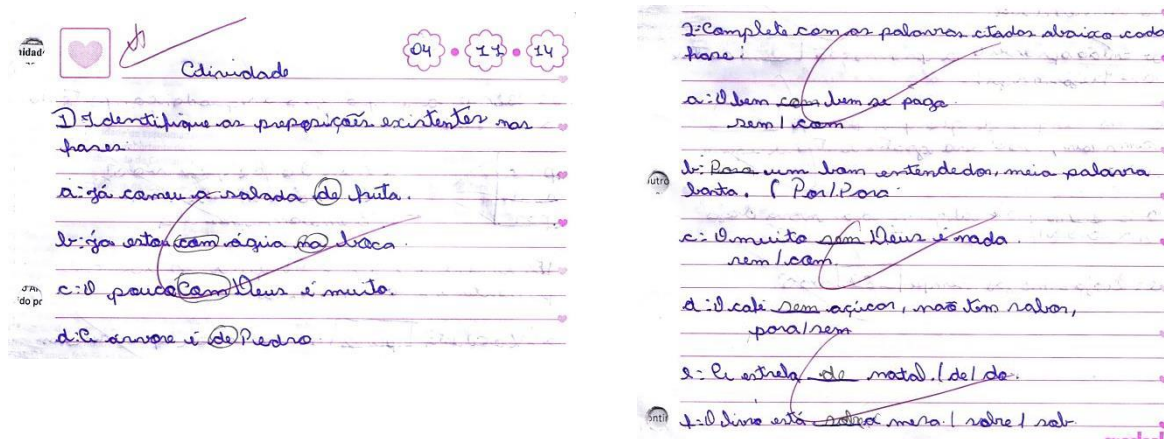 04 • 11 • 14
Atividade
1) Identifique as preposições existentes nas
frases:
a: Já comeu a salada de fruta.
b: ja estou com água na boca.
c: O pouco com Deus é muito.
d: A árvore é de Pedro
2: Complete com as palavras citadas abaixo cada
frase:
a: O bem com bem se paga.
sem / com
b: Para um bom entendedor, meia palavra
basta. ( Por/Para
c: O muito sem Deus é nada.
sem / com.
d: O café sem açúcar, não tem sabor,
para/sem
e: A estrela de natal. / de / do.
f: O livro está sobre a mesa. / sobre / sob